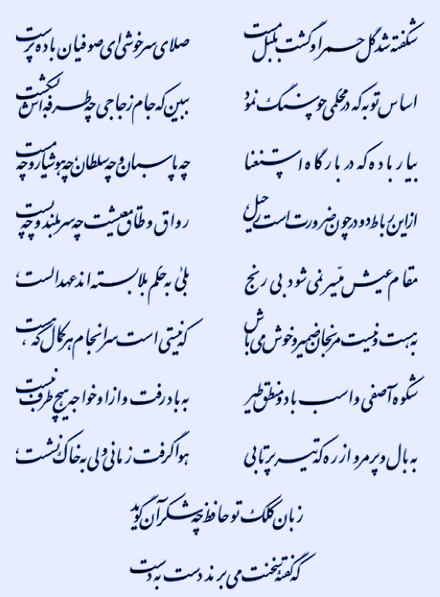 شکفته شد گل حمرا و گشت بلبل مست صلای سرخوشی ای صوفیان باده پرست
اساس توبه که در محکمی چو سنگ نمود ببین که جام زجاجی چه طرفه‌اش بشکست
بیار باده که در بارگاه استغنا چه پاسبان و چه سلطان چه هوشیار و چه مست
از این رباط دو در چون ضرورت است رحیل رواق و طاق معیشت چه سربلند و چه پست
مقام عیش میسر نمی‌شود بی رنج بلی به حکم بلا بسته‌اند عهد الست
به هست و نیست مرنجان ضمیر و خوش می‌باش که نیستی است سرانجام هر کمال که هست
شکوه آصفی و اسب باد و منطق طیر به باد رفت و از او خواجه هیچ طرف نبست
به بال و پر مرو از ره که تیر پرتابی هوا گرفت زمانی ولی به خاک نشست
زبان کلک تو حافظ چه شکر آن گوید
که گفته سخنت می‌برند دست به دست